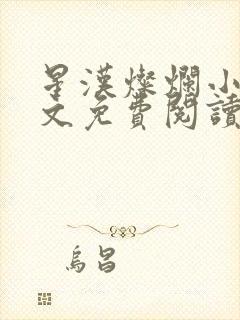 星漢燦爛小
文免費閱讀
烏昌